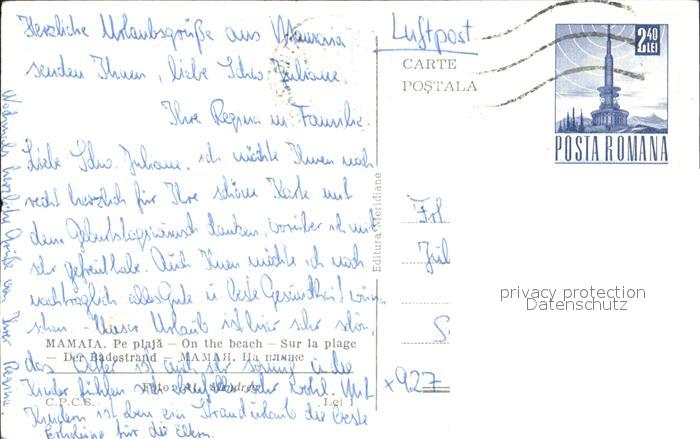 Herzliche Urlaubsgrüße aus Mamaia
senden Ihnen, liebe Schw. Juliane,
Ihre Regina m. Familie.
Liebe Schw. Juliane, ich möchte Ihnen noch
recht herzlich für Ihre schöne Karte mit
dem Geburtstagswunsch danken, worüber ich mich
sehr gefreut habe. Auch Ihnen möchte ich noch
nachträglich alles Gute u. beste Gesundheit wün-
schen. - Unser Urlaub ist hier sehr schön,
das Wetter ist auch sehr sonnig u. die
Kinder fühlen sich ebenfalls sehr wohl. Mit
Kindern ist eben ein Strandurlaub die beste
Erholung für die Eltern.
Nochmals herzliche Grüße von Ihrer Regina.
MAMAIA. Pe plajă — On the beach — Sur la plage
— Der Badestrand — МАМАЯ. На пляже
Foto:
C.P.C.S.
Lei 1
Editura Meridiane
Luftpost
CARTE
POȘTALA
2,40
LEI
POSTA ROMANA
Frl
Jül
S
x 927
privacy protection
Datenschutz